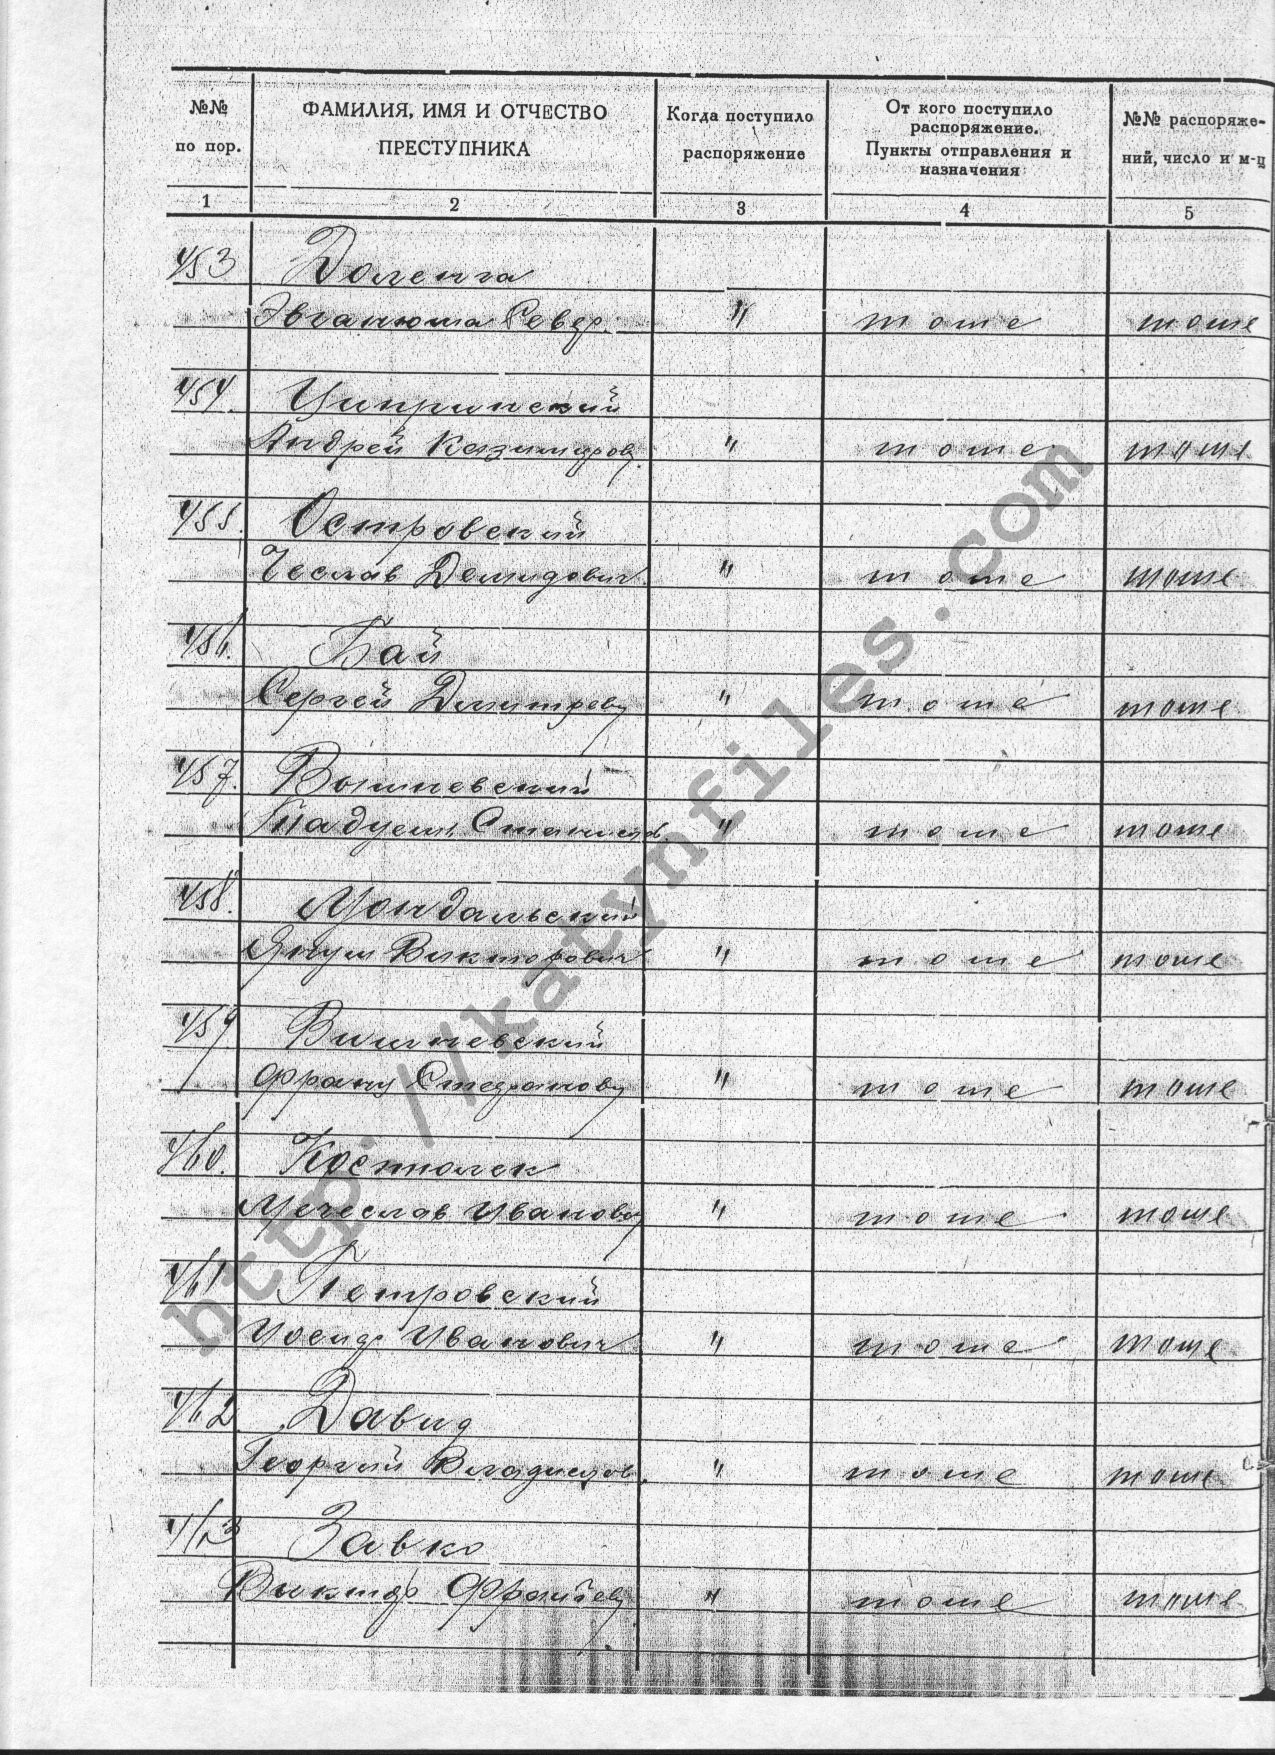 №№ по пор.
ФАМИЛИЯ, ИМЯ И ОТЧЕСТВО ПРЕСТУПНИКА
Когда поступило распоряжение
От кого поступило распоряжение. Пункты отправления и назначения
№№ распоряже- ний, число и м-ц
1 2 3 4 5
453 Доленга
Север. " тоже тоже
454.
Андрей Казимиров. " тоже тоже
455. Островский
Чеслав Демидович " тоже тоже
456. Бай
Сергей Дмитриев " тоже тоже
457. Вышневский
Тадеуш Станислав. " тоже тоже
458. Мондальский
Януш Викторович " тоже тоже
459 Вишневский
Франц Стефанов " тоже тоже
460. Костюлек
Мечеслав Иванов " тоже тоже
461 Петровский
Иосиф Иванович " тоже тоже
462 Давид
Георгий Владислов. " тоже тоже
463 Завко
Виктор " тоже тоже
http://katynfiles.com